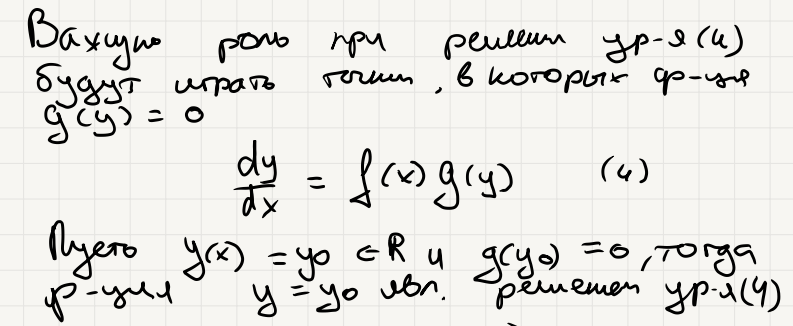 Важную роль при решении ур-я (4)
будут играть точки, в которых ф-ция
g(y) = 0
dy/dx = f(x) g(y) (4)
Пусть y(x) = y₀ ∈ R и g(y₀) = 0, тогда
ф-ция y = y₀ явл. решением ур-я (4)